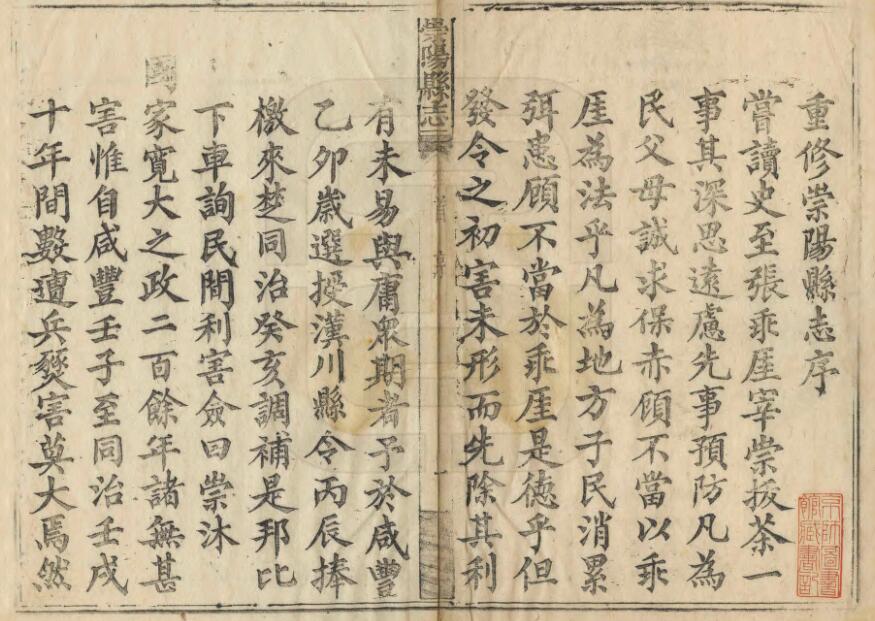 重修崇陽縣志序
嘗讀史至張乖厓宰崇拔茶一
事其深思遠慮先事預防凡為
民父母誠求保赤顧不當以乖
厓為法乎凡為地方子民消累
弭患顧不當於乖厓是德乎但
發令之初害未形而先除其利
崇陽縣志
首
有未易與庸眾期者予於咸豐
乙卯歲選授漢川縣令丙辰捧
檄來楚同治癸亥調補是邦比
下車詢民間利害僉曰崇沐
國
家寬大之政二百餘年諸無甚
害惟自咸豐壬子至同治壬戌
十年間數遭兵燹害莫大焉然